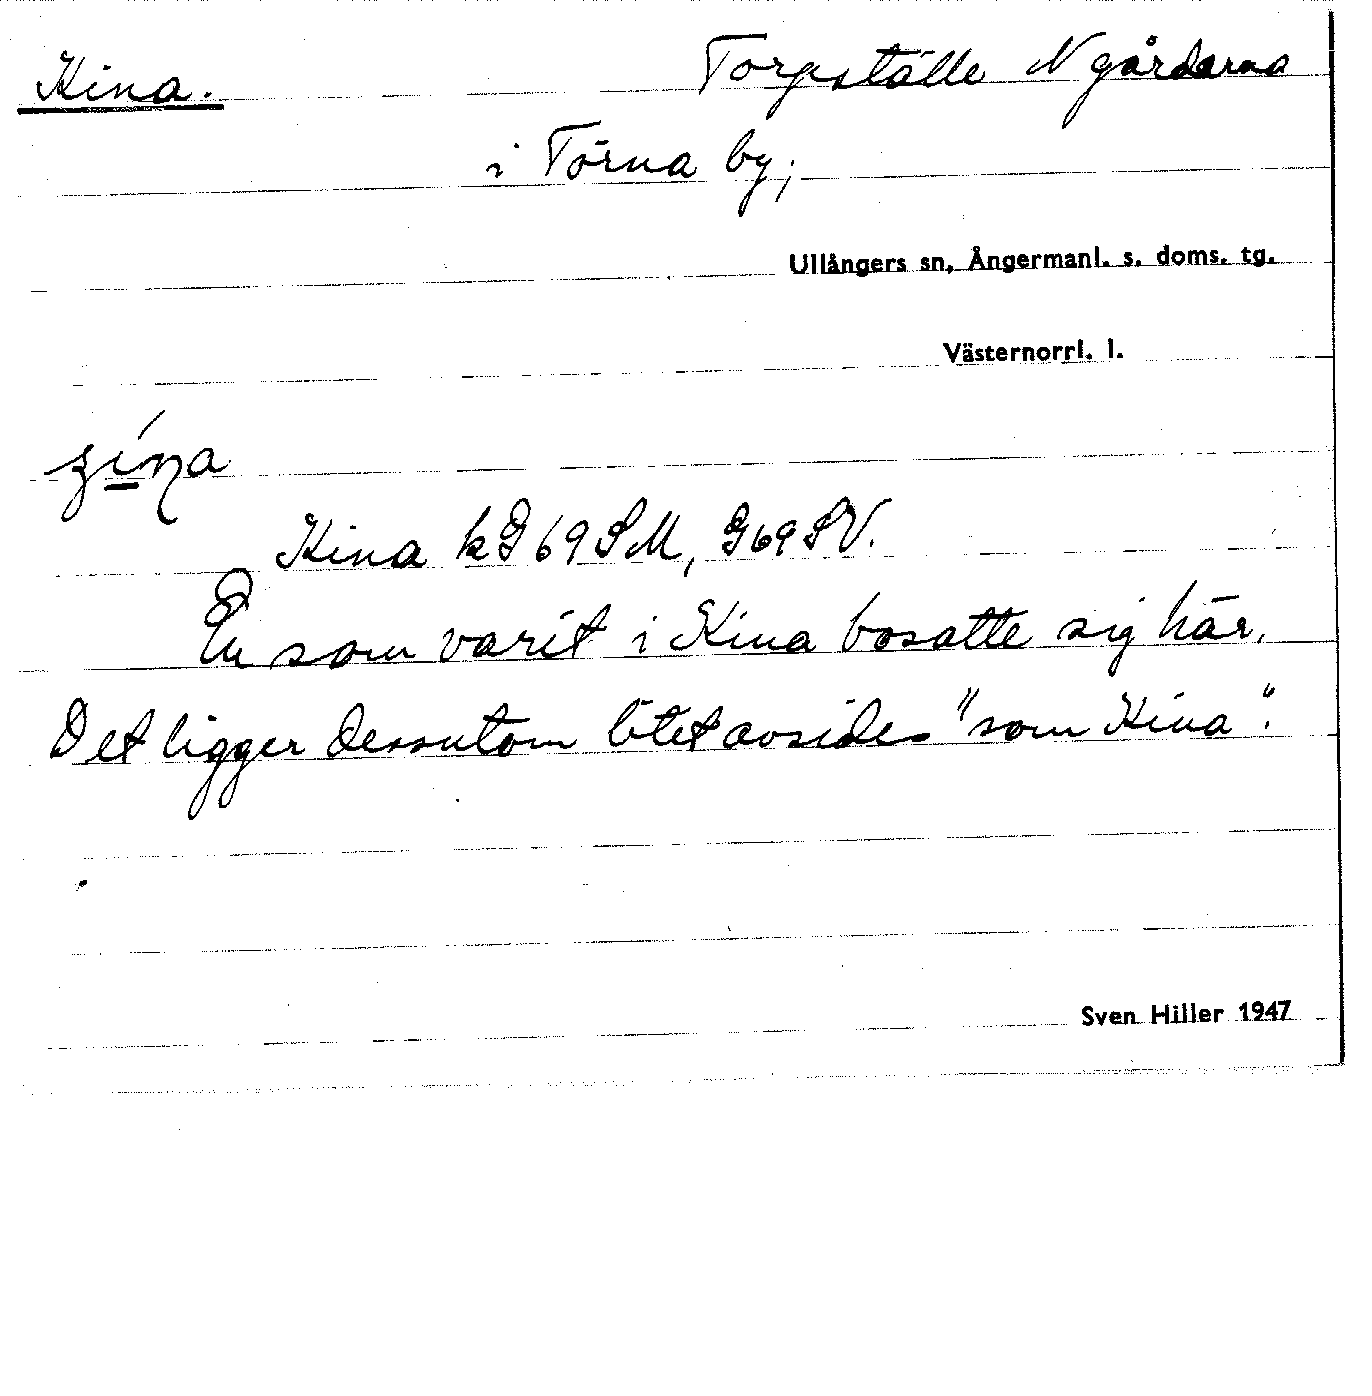 Kina. Torpställe N gårdarna
i Törna by;
Ullångers sn, Ångermanl. s. doms. tg.
Västernorrl. l.
Kina kG69SM, G69SV.
En som varit i Kina bosatte sig här.
Det ligger dessutom litet avsides "som Kina".
Sven Hiller 1947